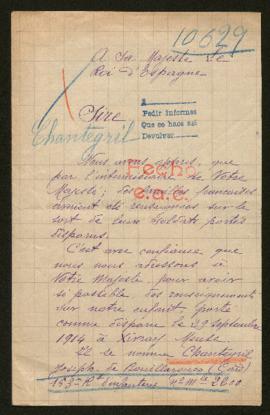 10629
A Sa Majesté Le
Roi d'Espagne
Sire
A
Pedir informes
Que se hace así
Devolver
Chantegril
Nous avons appris, que
par l'intermédiaire de Votre
Majesté; des familles françaises
avaient été renseignées sur le
sort de leurs soldats portés
disparus.
Fecho
e.a.e.
C'est avec confiance que
nous nous adressons à
Votre Majesté pour avoir
si possible des renseignements
sur notre enfant porté
comme disparu le 29 septembre
1914 à Xivray Meuse
Il se nomme Chantegril
Joseph de
153e Rt d'infanterie n° Mle 2600